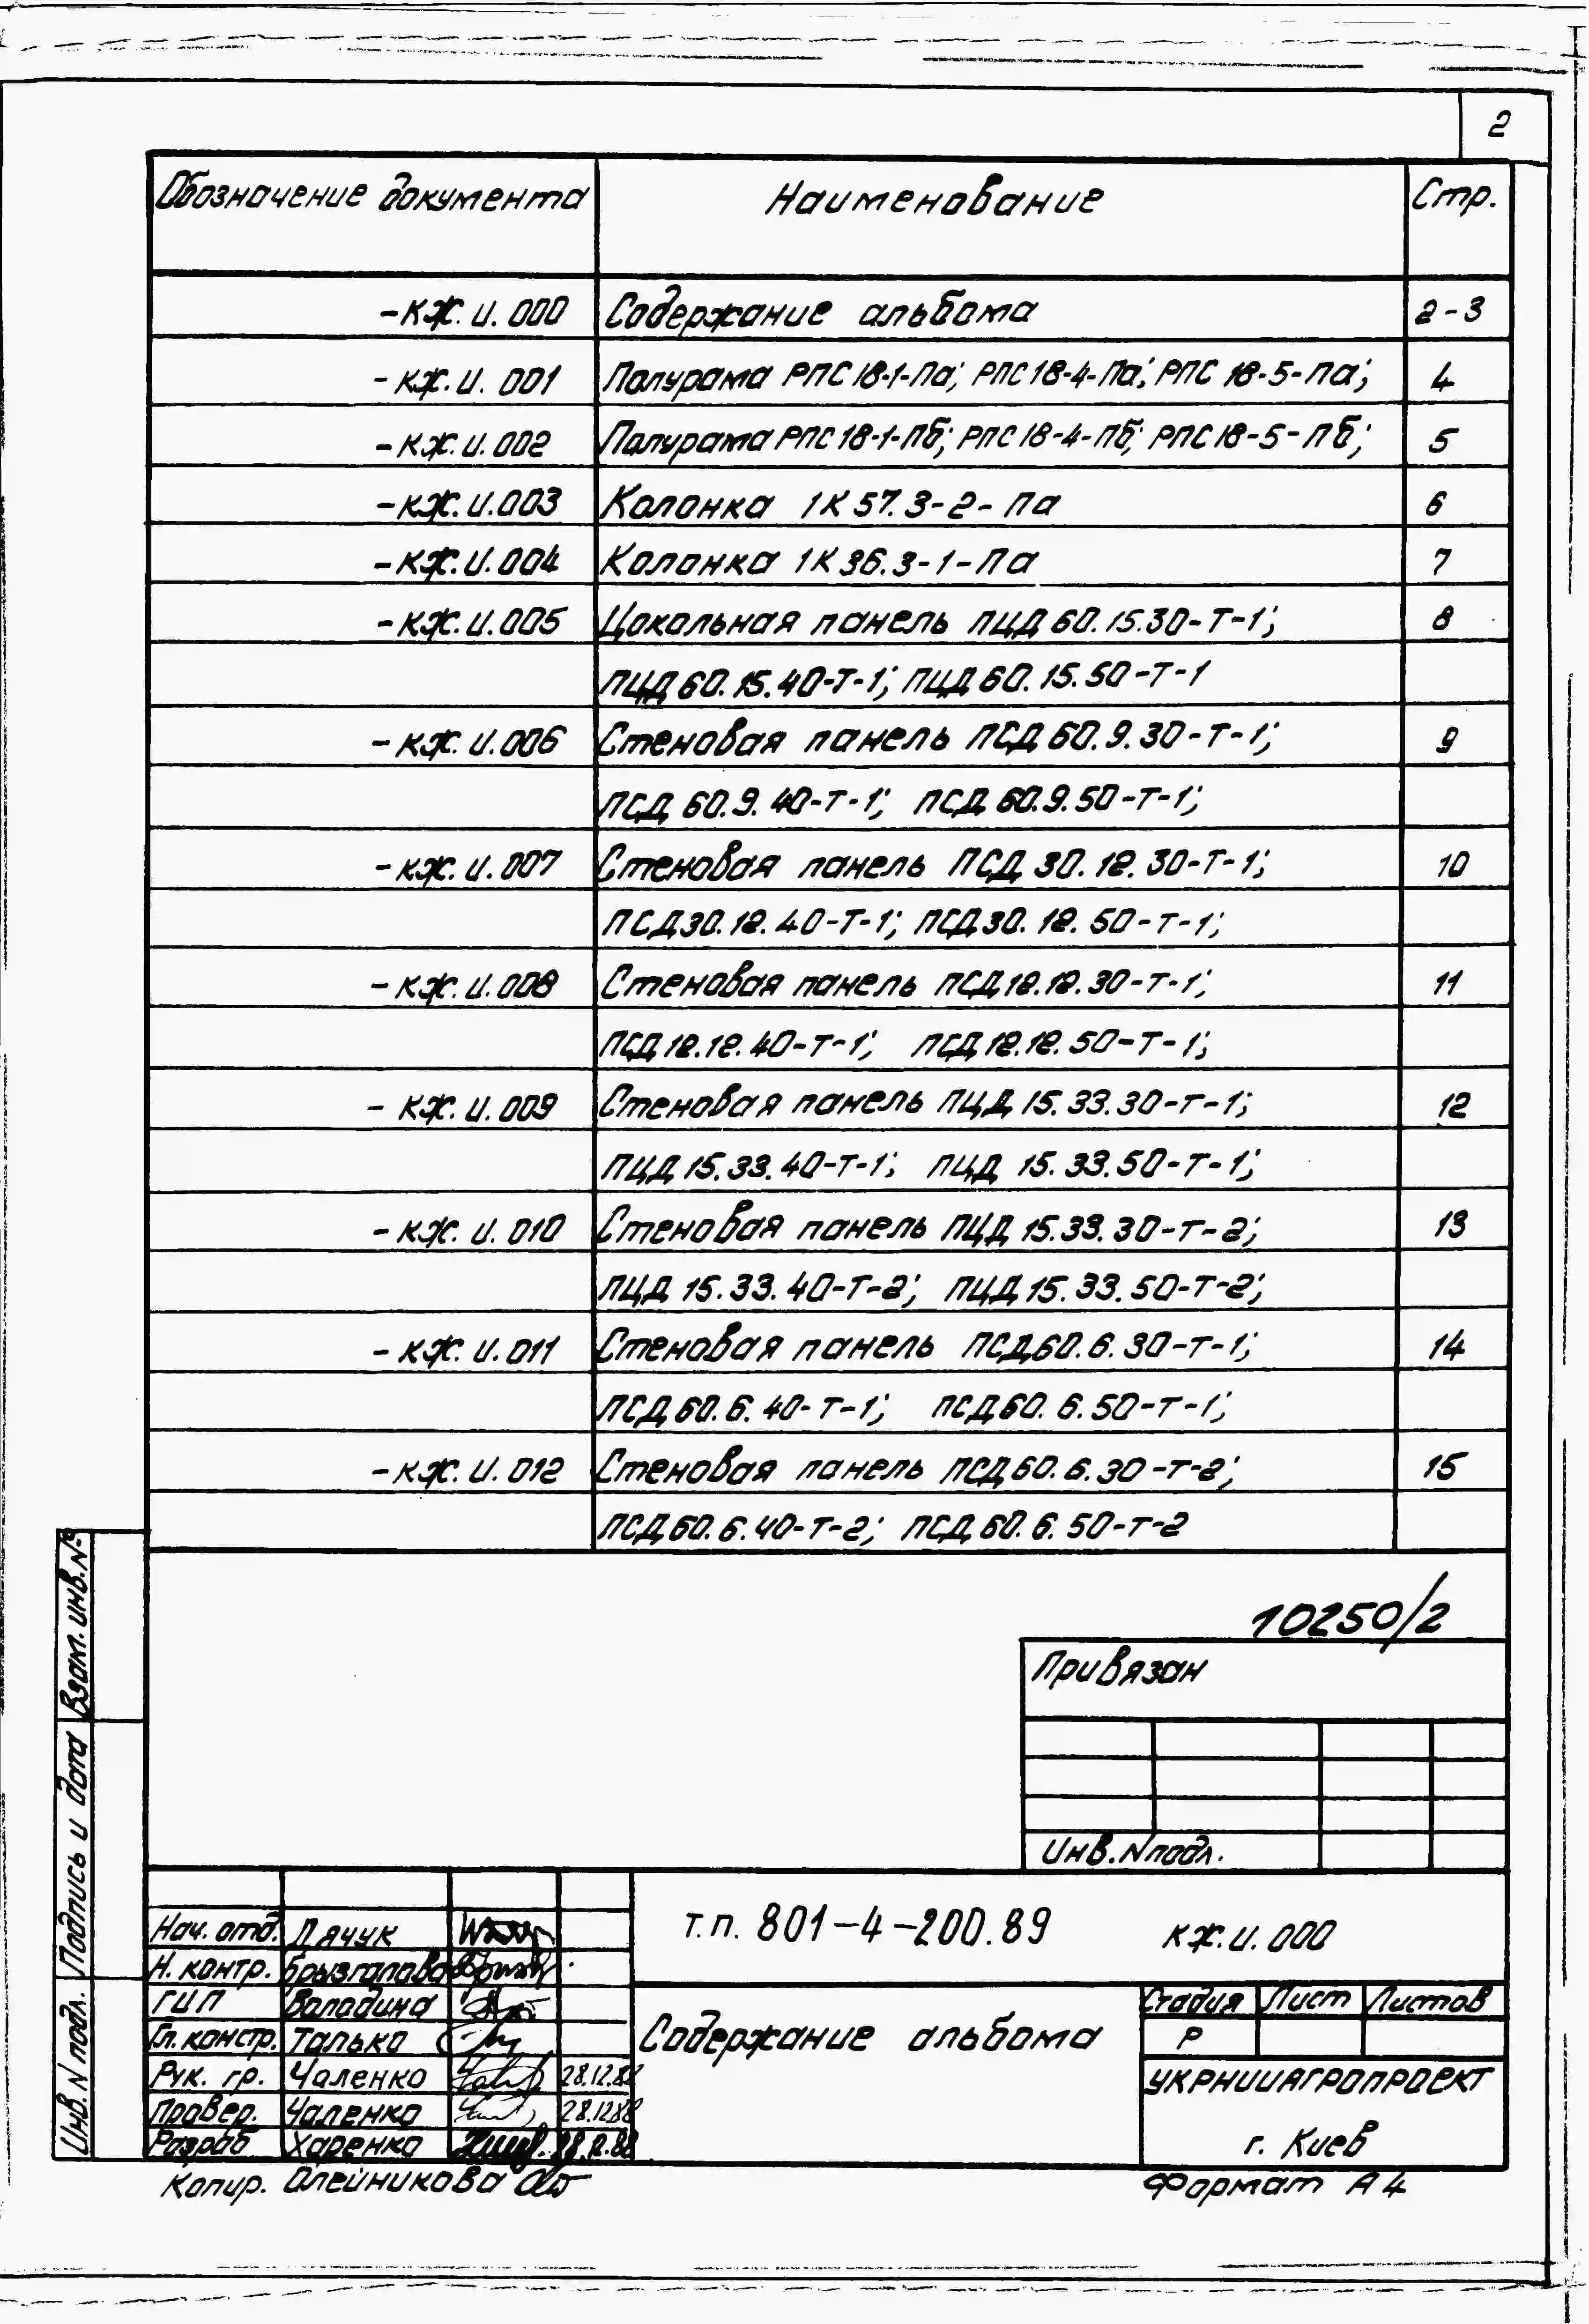 2
Обозначение документа Наименование Стр.
-КЖ.И.000 Содержание альбома 2-3
-КЖ.И.001 Полурама РПС18-1-Па; РПС18-4-Па; РПС 18-5-Па; 4
-КЖ.И.002 Полурама РПС18-1-Пб; РПС18-4-Пб; РПС18-5-Пб; 5
-КЖ.И.003 Колонка 1К57.3-2-Па 6
-КЖ.И.004 Колонка 1К36.3-1-Па 7
-КЖ.И.005 Цокольная панель ПЦД60.15.30-Т-1; 8
ПЦД60.15.40-Т-1; ПЦД60.15.50-Т-1
-КЖ.И.006 Стеновая панель ПСД60.9.30-Т-1; 9
ПСД60.9.40-Т-1; ПСД60.9.50-Т-1;
-КЖ.И.007 Стеновая панель ПСД30.12.30-Т-1; 10
ПСД30.12.40-Т-1; ПСД30.12.50-Т-1;
-КЖ.И.008 Стеновая панель ПСД12.12.30-Т-1; 11
ПСД12.12.40-Т-1; ПСД12.12.50-Т-1;
-КЖ.И.009 Стеновая панель ПЦД15.33.30-Т-1; 12
ПЦД15.33.40-Т-1; ПЦД 15.33.50-Т-1;
-КЖ.И.010 Стеновая панель ПЦД15.33.30-Т-2; 13
ПЦД15.33.40-Т-2; ПЦД15.33.50-Т-2;
-КЖ.И.011 Стеновая панель ПСД60.6.30-Т-1; 14
ПСД60.6.40-Т-1; ПСД60.6.50-Т-1;
-КЖ.И.012 Стеновая панель ПСД60.6.30-Т-2; 15
ПСД60.6.40-Т-2; ПСД60.6.50-Т-2
10250/2
Привязан
Инв.N подл.
Взам. инв.№
Подпись и дата
Инв.N подл.
Т.п. 801-4-200.89 КЖ.И.000
Нач. отд. Дячук
Н. контр. Брызгалова
ГИП Володина
Гл. констр. Талько
Рук. гр. Чаленко 28.12.88
Провер. Чаленко 28.12.88
Разраб Харенко 28.12.88
Содержание альбома
Стадия Лист Листов
Р
УКРНИИАГРОПРОЕКТ
г. Киев
Копир. Олейникова
Формат А4